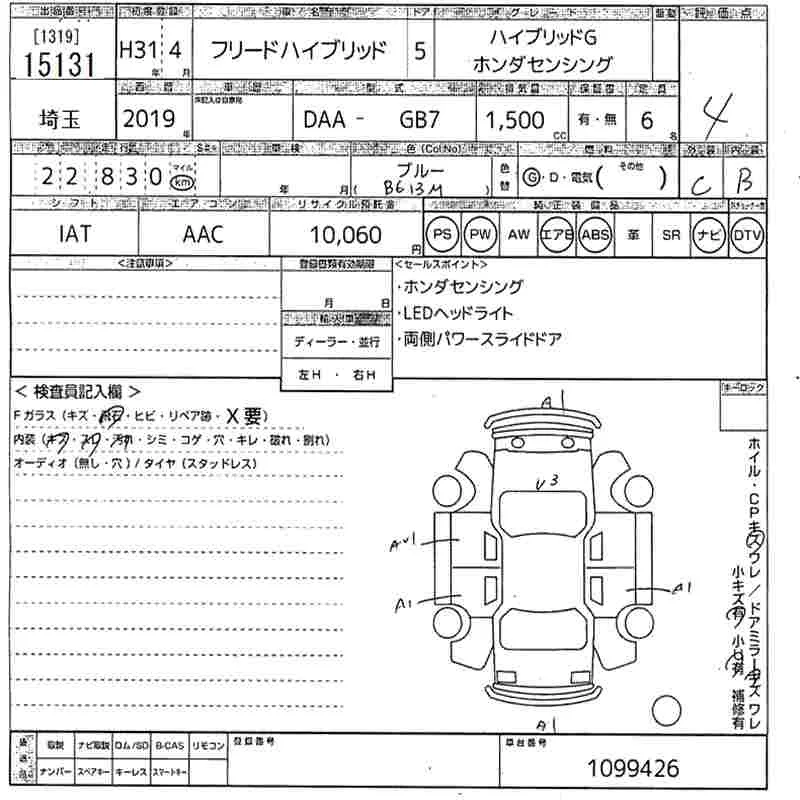 出品番号 初度登録 車名 ドア グレード 車歴 評価点
[1319]
15131 H31年 4月 フリードハイブリッド 5 ハイブリッドG
ホンダセンシング
4
西暦 車歴 型式 排気量 保証書 定員
埼玉 2019年 DAA - GB7 1,500cc 有・無 6名
走行 車検 色(Col No) 燃料 外装 内装
22,830 マイル km 年 月 ブルー
( B613M ) 色替 G・D・電気( その他 ) C B
シフト エアコン リサイクル預託金 純正装備品
IAT AAC 10,060円 PS PW AW エアB ABS 革 SR ナビ DTV
<注意事項> 登録書類有効期限 <セールスポイント>
月 日 ・ホンダセンシング
輸入車 ・LEDヘッドライト
ディーラー・並行 ・両側パワースライドドア
左H ・ 右H
< 検査員記入欄 > キーロック
Fガラス(キズ・飛石・ヒビ・リペア跡・X要)
内装(キズ・スレ・汚れ・シミ・コゲ・穴・キレ・破れ・割れ)
オーディオ(無し・穴)/タイヤ(スタッドレス)
A1
U3
AU1
A1
A1
A1
ホイル・CPキズワレ/ドアミラーキズワレ
小キズ有 小凹有 補修有
後送品 取説 ナビ取説 ロム/SD B-CAS リモコン 登録番号 車台番号
ナンバー スペアキー キーレス スマートキー 1099426